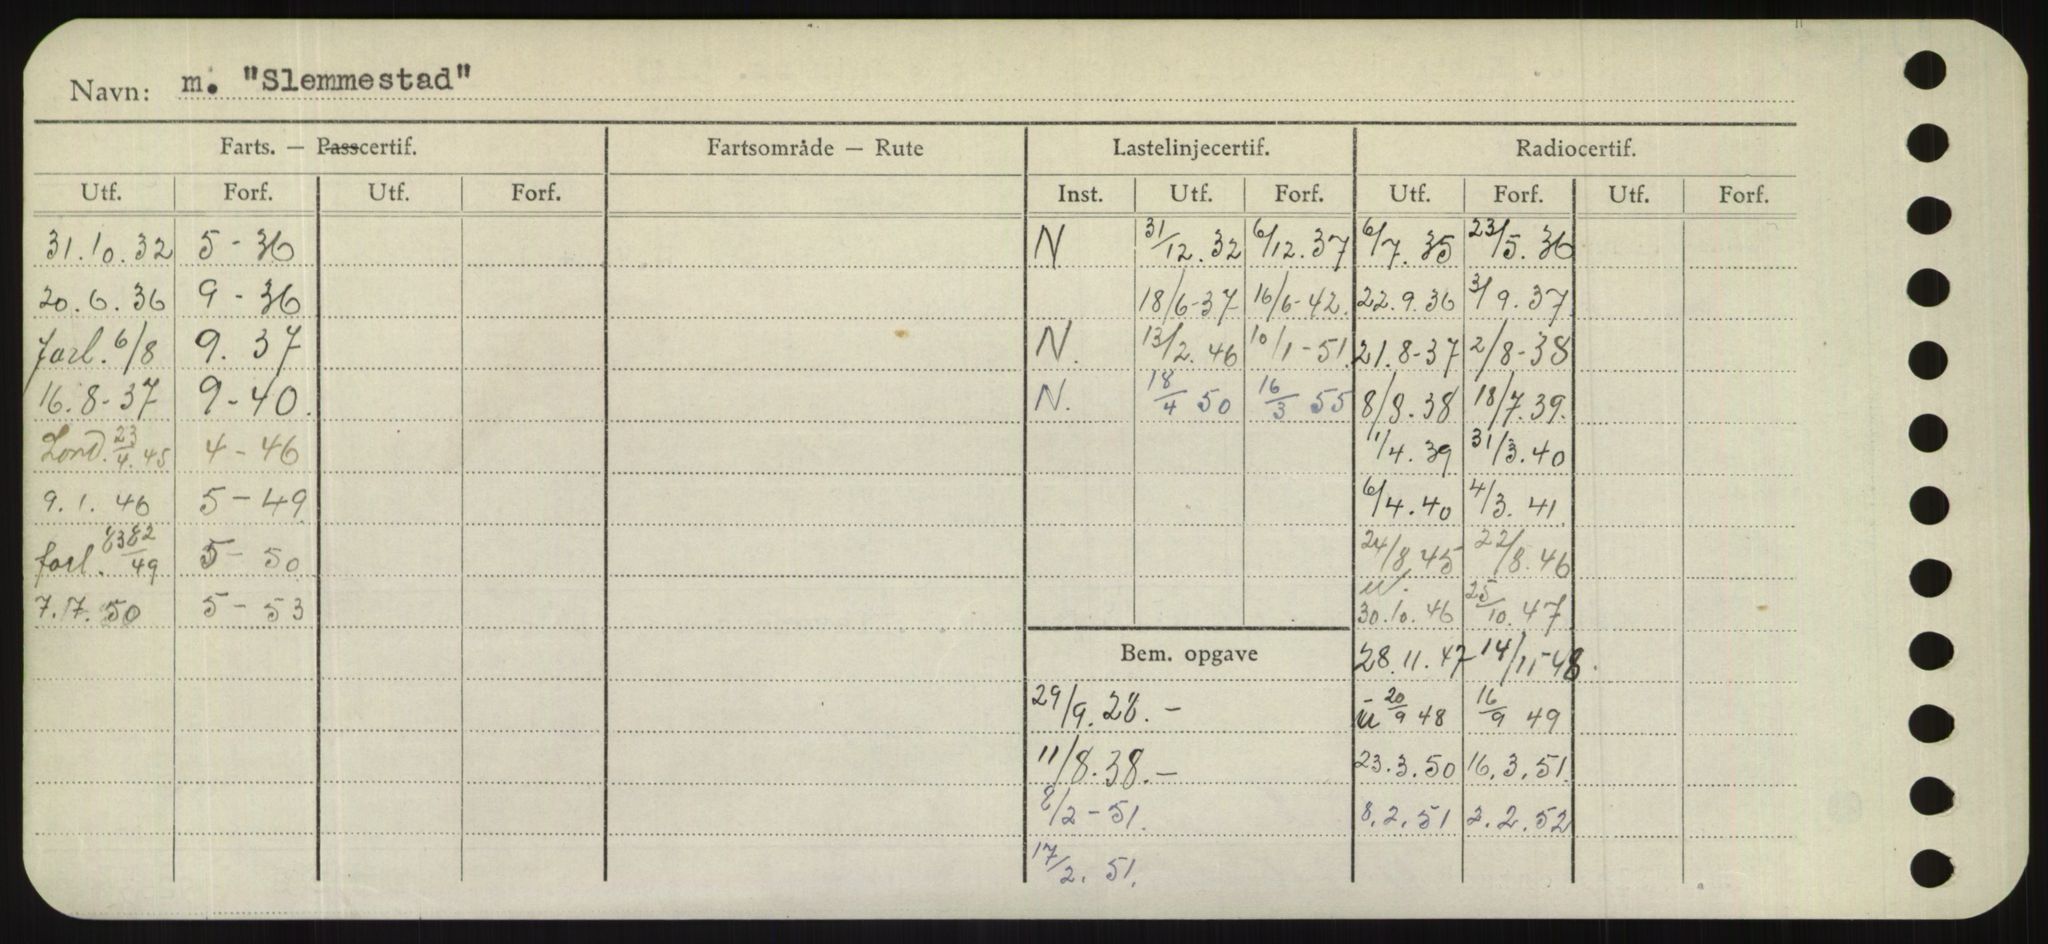 Navn: m. "Slemmestad"
Farts. — Passcertif. Fartsområde — Rute Lastelinjecertif. Radiocertif.
Utf. Forf. Utf. Forf. Inst. Utf. Forf. Utf. Forf. Utf. Forf.
31.10.32 5 - 36 N 31/12.32 6/12.37 6/7.35 23/5.36
20.6.36 9 - 36 18/6-37 16/6-42. 22.9.36 3/9.37
forl. 6/8 9.37 N. 13/2.46 10/1-51 21.8-37 2/8-38
16.8-37 9-40. N. 18/4 50 16/3 55 8/8.38 18/7.39.
Lond. 23/4.45 4-46 1/4.39 31/3.40
9.1.46 5-49 6/4.40 4/3.41
forl. 8382/49 5-50 24/8.45 22/8.46
7.7.50 5-53 30.10.46 25/10.47
Bem. opgave 28.11.47 14/11-48.
29/9.28.- ü 20/9 48 16/9 49
11/8.38.- 23.3.50 16.3.51.
8/2-51. 8.2.51 2.2.52
17/2.51.